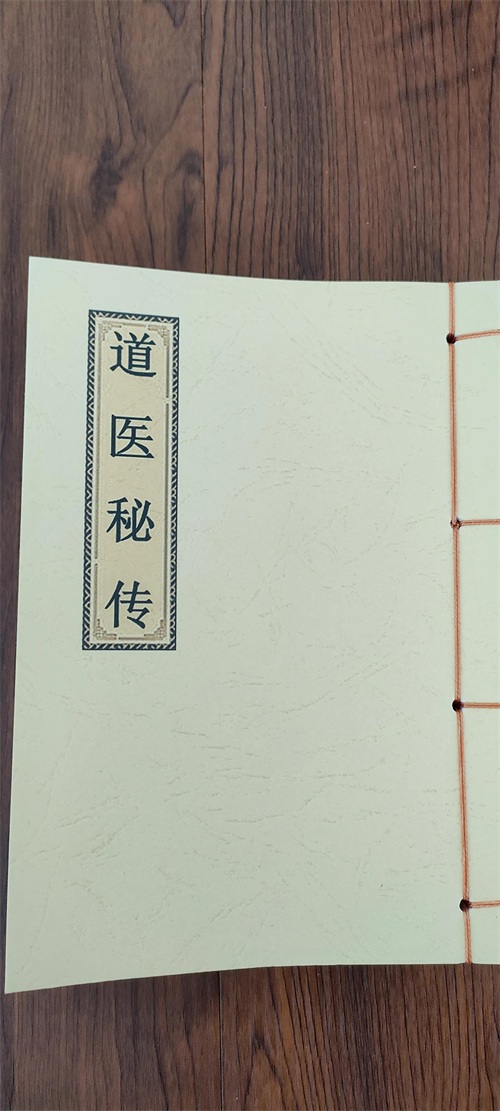 道医秘传